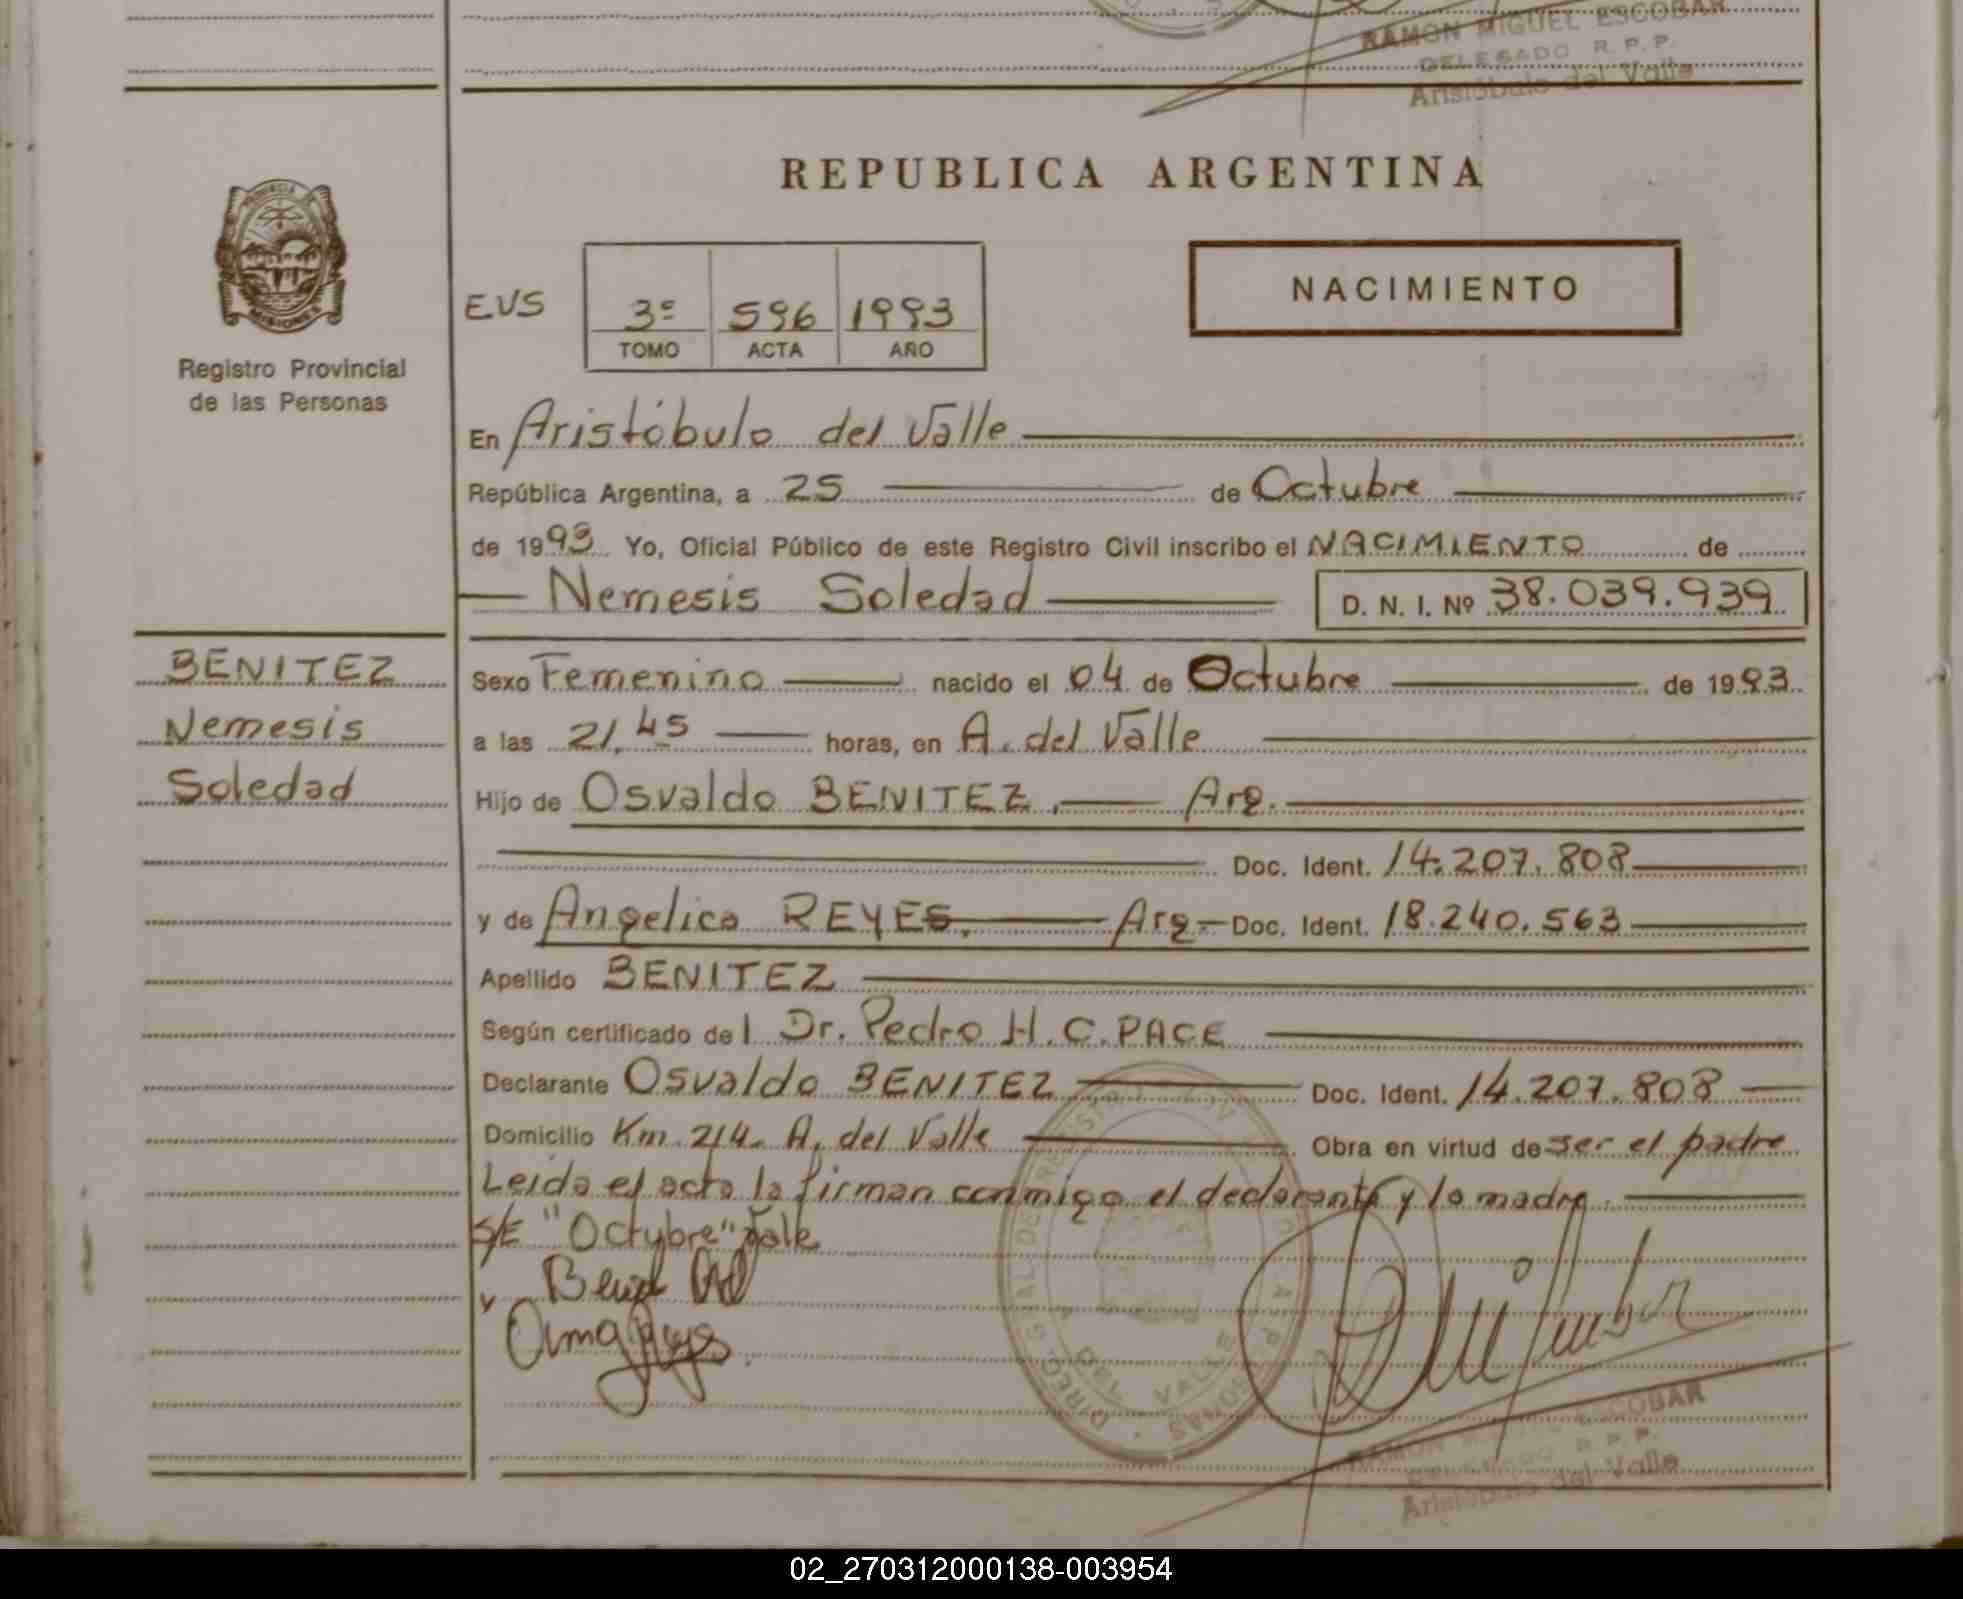 RAMON MIGUEL ESCOBAR
DELEGADO R. P. P.
Aristóbulo del Valle
REPUBLICA ARGENTINA
PROVINCIA DE
MISIONES
Registro Provincial
de las Personas
EVS
3º 596 1993
TOMO ACTA AÑO
NACIMIENTO
En Aristóbulo del Valle
República Argentina, a 25 de Octubre
de 1993 Yo, Oficial Público de este Registro Civil inscribo el NACIMIENTO de
Nemesis Soledad D. N. I. Nº 38.039.939
BENITEZ
Nemesis
Soledad
Sexo Femenino nacido el 04 de Octubre de 1993
a las 21,45 horas, en A. del Valle
Hijo de Osvaldo BENITEZ. Arg.
Doc. Ident. 14.207.808
y de Angelica REYES. Arg. Doc. Ident. 18.240.563
Apellido BENITEZ
Según certificado del Dr. Pedro H. C. PACE
Declarante Osvaldo BENITEZ Doc. Ident. 14.207.808
Domicilio Km. 214. A. del Valle Obra en virtud de ser el padre
Leida el acta la firman conmigo el declarante y la madre.
S/E "Octubre" Vale
RAMON MIGUEL ESCOBAR
DELEGADO R. P. P.
Aristóbulo del Valle
02_270312000138-003954